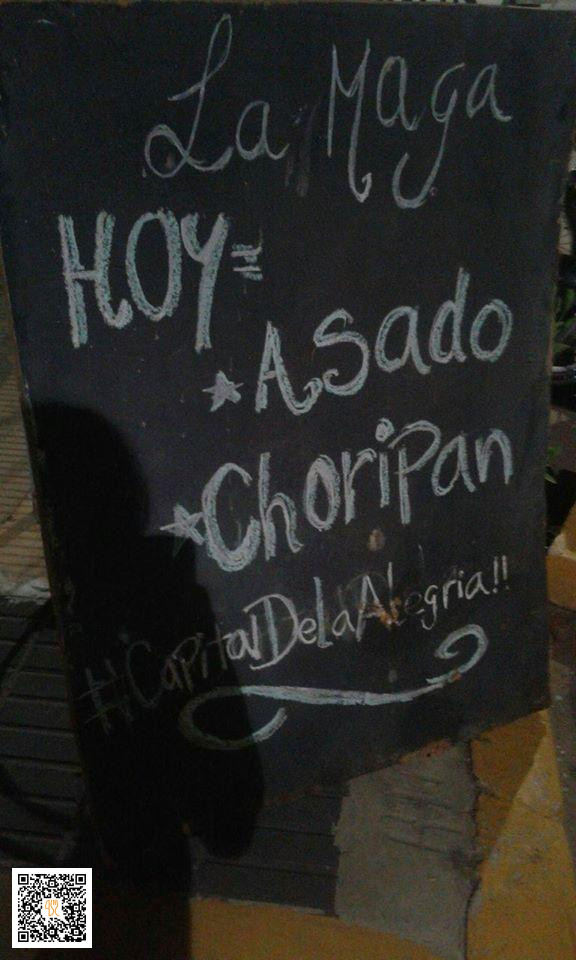 La Maga
HOY=
Asado
Choripan
#CapitalDeLaAlegria!!